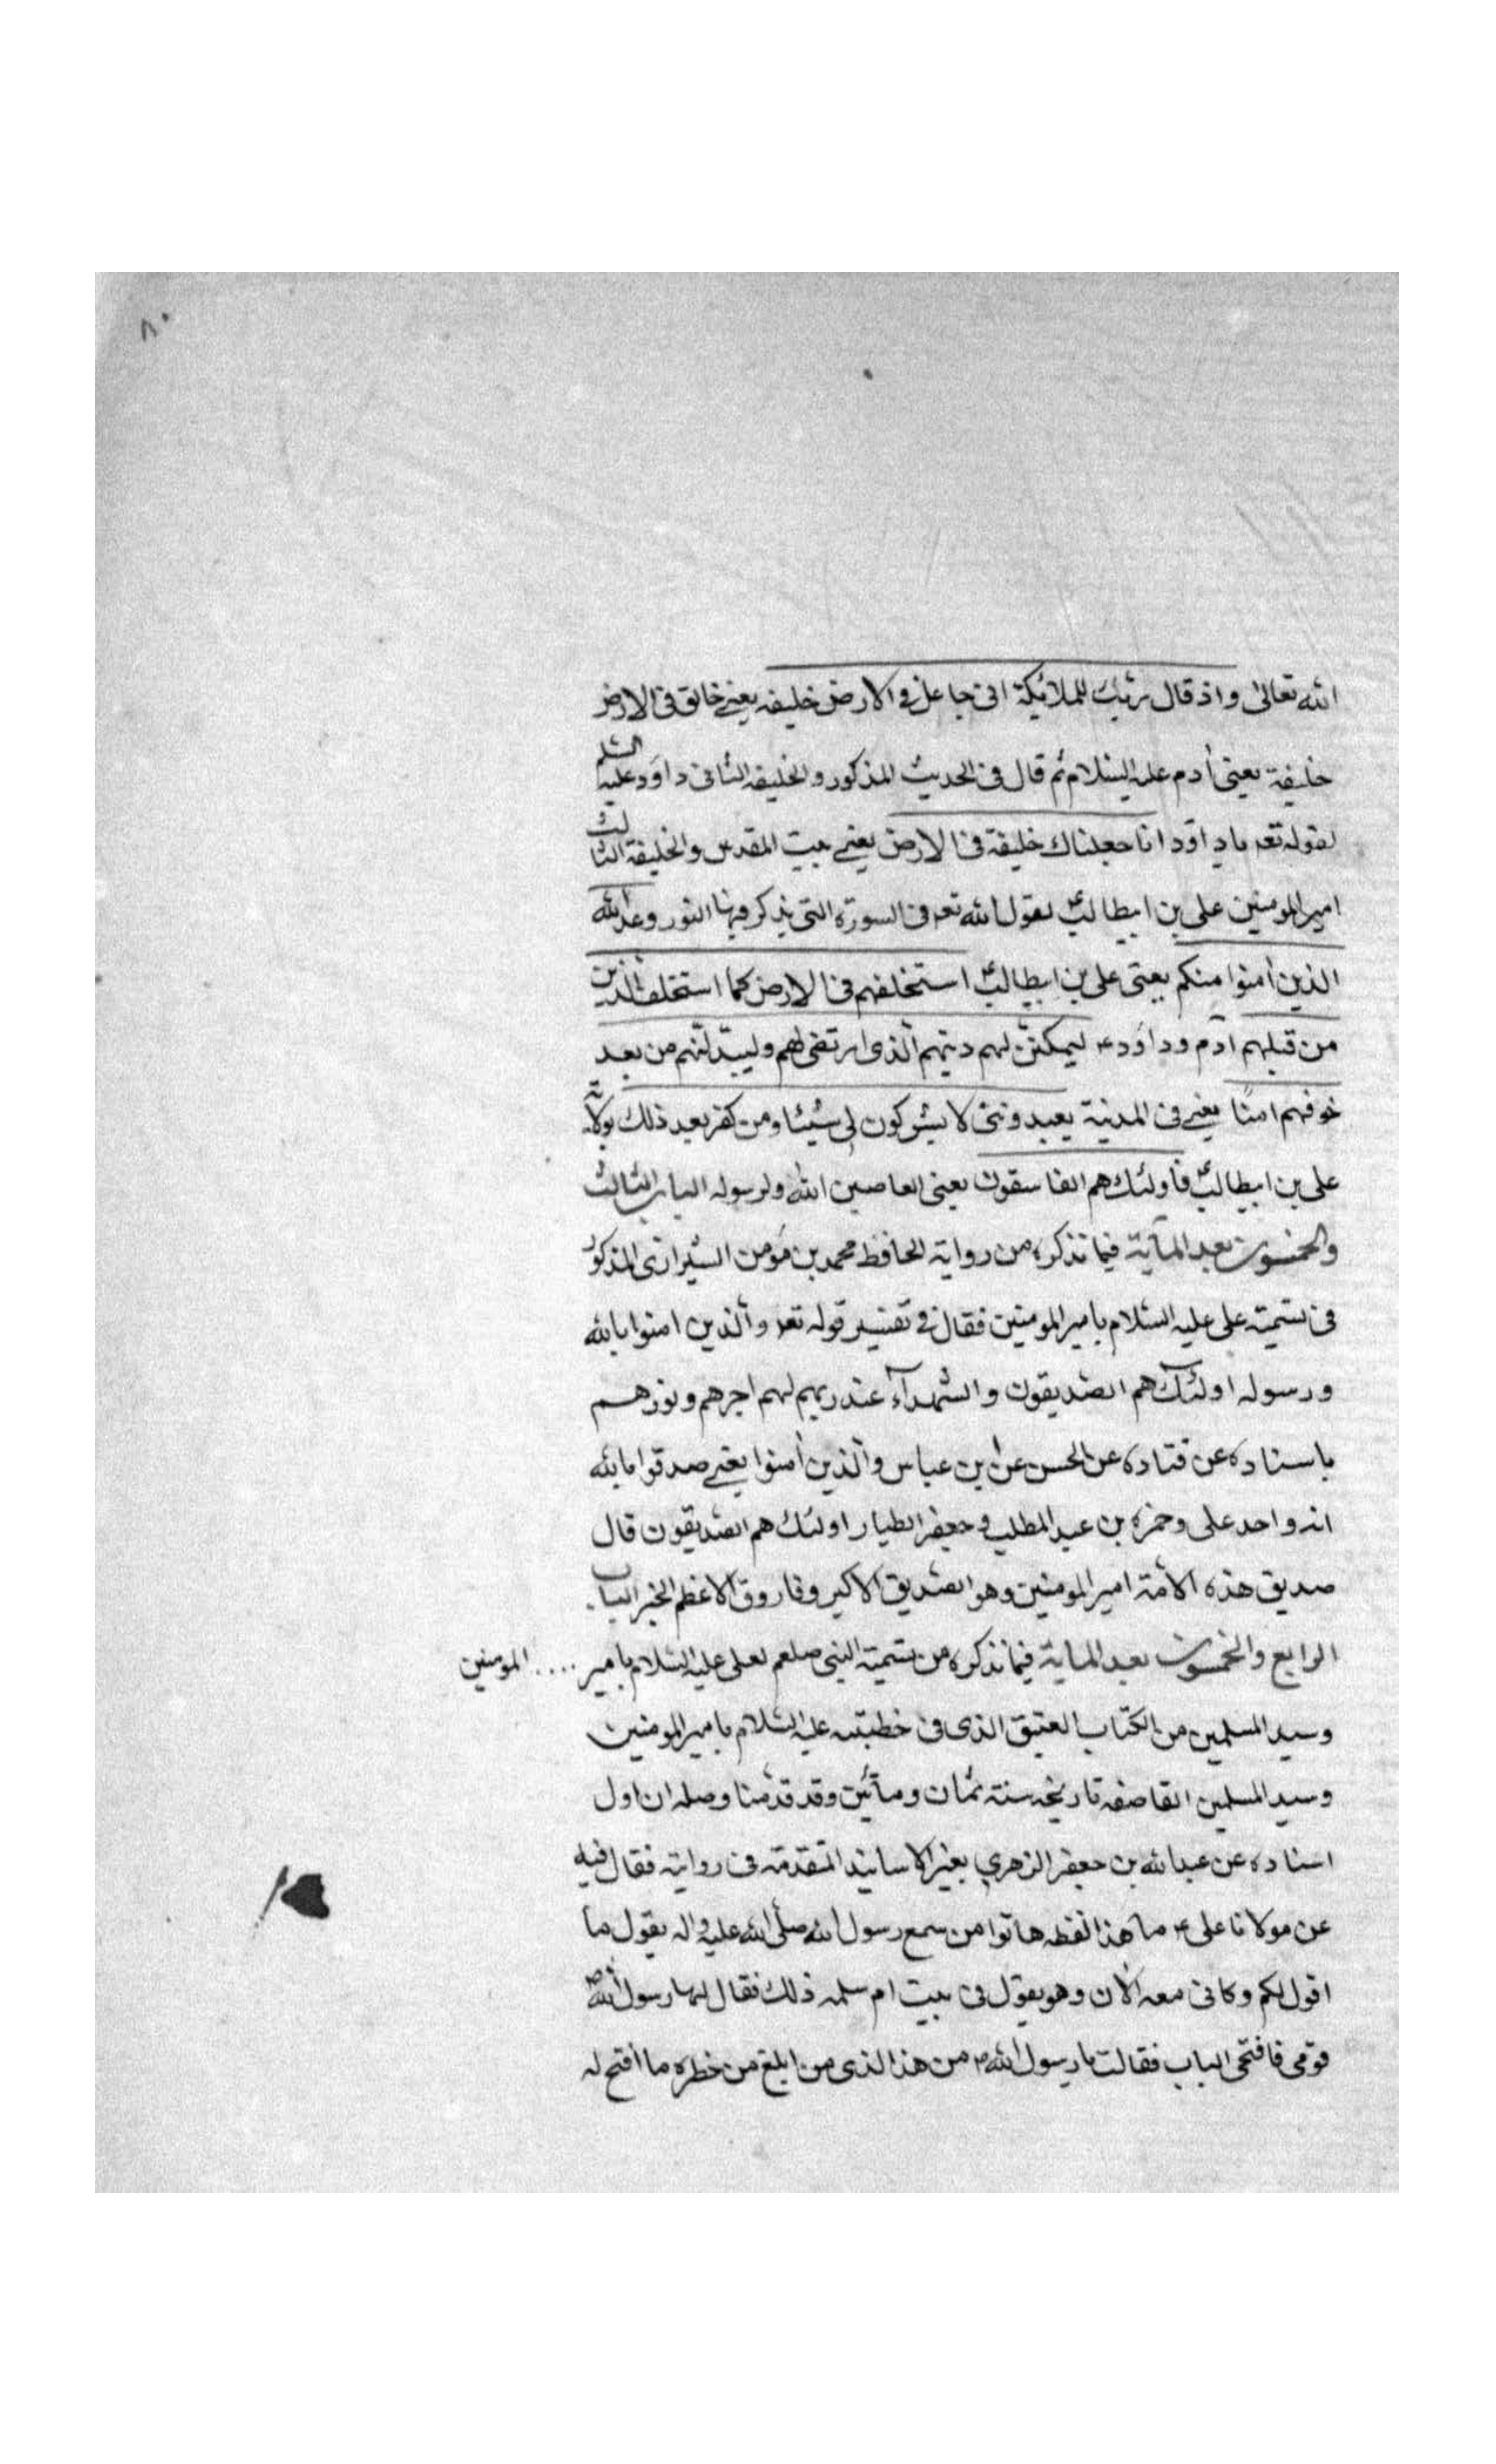 ٨٠
الله تعالى واذ قال ربك للملائيكة انى جاعل فى الارض خليفه يعنى خالق فى الارض
خليفة يعنى أدم عليه السلام ثم قال فى الحديث المذكور والخليفه الثانى داود عليه السلم
لقوله تعه ياداود انا جعلناك خليفة فى الارض يعنى بيت المقدس والخليفة الثالث
امير المومنين على بن ابيطالب ع لقول الله تعه فى السورة التى يذكر فيها النور وعد الله
الذين أمنوا منكم يعنى على بن ابيطالب ع استخلفهم فى الارض كما استخلف الذين
من قبلهم آدم وداود ع ليمكنن لهم دينهم الذى ارتضى لهم وليبدلنهم من بعد
خوفهم امنًا يعنى فى المدينة يعبدوننى لا يشركون لى شيئا ومن كفر بعد ذلك بولاية
على بن ابيطالب ع فأولئك هم الفاسقون يعنى العاصين الله ولرسوله الباب الثالث
والخمسون بعد المآية فيما نذكره من رواية الحافظ محمد بن مؤمن الشيرازى المذكور
فى تسمية على عليه السلام بامير المومنين فقال فى تفسير قوله تعه والذين امنوا بالله
ورسوله اولئك هم الصديقون والشهدآء عند ربهم لهم اجرهم ونورهم
باسناده عن قتاده عن الحسن عن ابن عباس والذين أمنوا يعنى صدقوا بالله
انه واحد على وحمزه بن عبد المطلب وجعفر الطيار اولئك هم الصديقون قال
صديق هذه الامة امير المومنين وهو الصديق الاكبر وفاروق الاعظم الخبر الباب
الرابع والخمسون بعد الماية فيما نذكره من تسمية النبى صلعم لعلى عليه السلام بامير .... المومنين
وسيد المسلمين من الكتاب العتيق الذى فى خطبته عليه السلام بامير المومنين
وسيد المسلمين القاصفه تاريخه سنة ثمان ومآئين وقد قدمنا وصله ان اول
اسناده عن عبد الله بن جعفر الزهري بغير الاسانيد المتقدمة فى رواية فقال فيه
عن مولانا على ع ما هذا لفظه هاتوا من سمع رسول الله صلى الله عليه واله يقول ما
اقول لكم وكانى معه الان وهو يقول فى بيت ام سلمه ذلك فقال لها رسول الله ص
قومى فافتحى الباب فقالت يارسول الله من هذا الذى من ابلغ من خطره ما افتح له